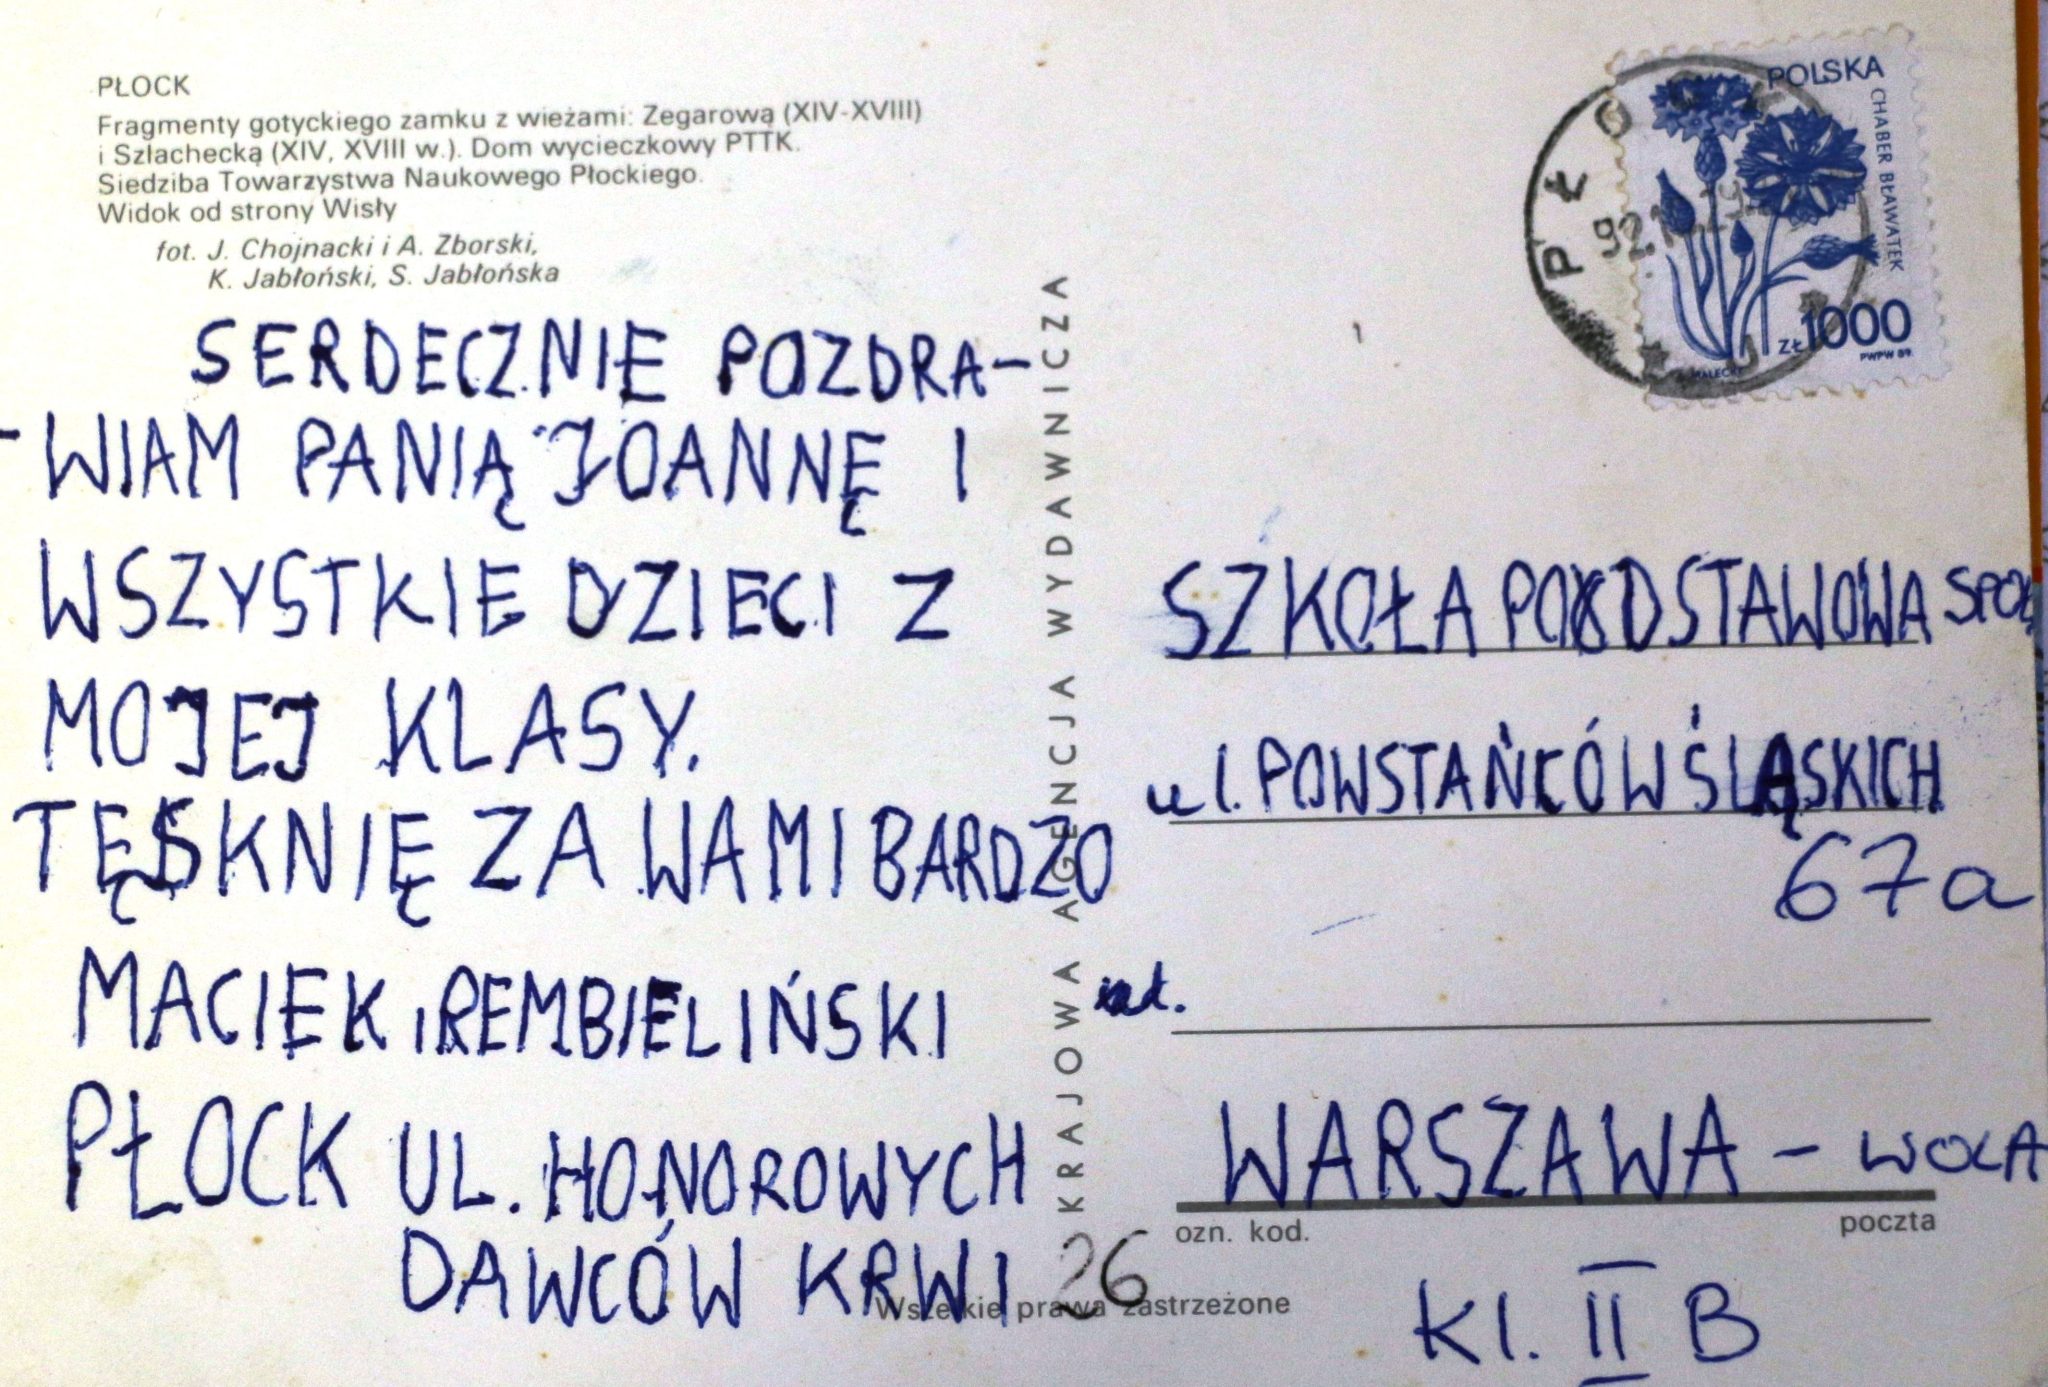 PŁOCK
Fragmenty gotyckiego zamku z wieżami: Zegarową (XIV-XVIII)
i Szlachecką (XIV, XVIII w.). Dom wycieczkowy PTTK.
Siedziba Towarzystwa Naukowego Płockiego.
Widok od strony Wisły
fot. J. Chojnacki i A. Zborski,
K. Jabłoński, S. Jabłońska
SERDECZNIE POZDRA-
-WIAM PANIĄ JOANNĘ I
WSZYSTKIE DZIECI Z
MOJEJ KLASY.
TĘSKNIĘ ZA WAMI BARDZO
MACIEK REMBIELIŃSKI
PŁOCK UL. HONOROWYCH
DAWCÓW KRWI 26
KRAJOWA AGENCJA WYDAWNICZA
Wszelkie prawa zastrzeżone
POLSKA
CHABER BŁAWATEK
ZŁ 1000
PWPW 89
MALECKI
PŁOCK
SZKOŁA PODSTAWOWA SPOŁ.
ul. POWSTAŃCÓW ŚLĄSKICH
67a
WARSZAWA - WOLA
ozn. kod.
poczta
kl. II B